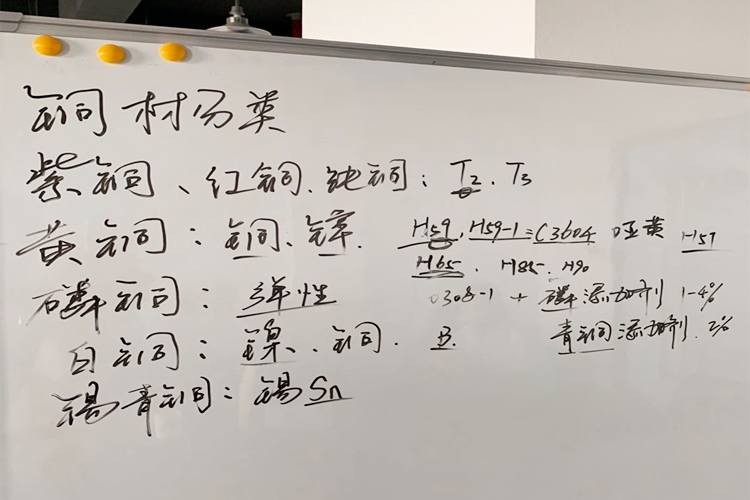 铜材分类
紫铜、红铜、纯铜：T2、T3
黄铜：铜、锌. H59，H59-1=C3604 哑黄 H57
H65、H85、H90
磷铜：弹性 0308-1 + 磷添加剂 1-4%
白铜：镍、铜. B. 青铜添加剂. 2%
锡青铜：锡Sn